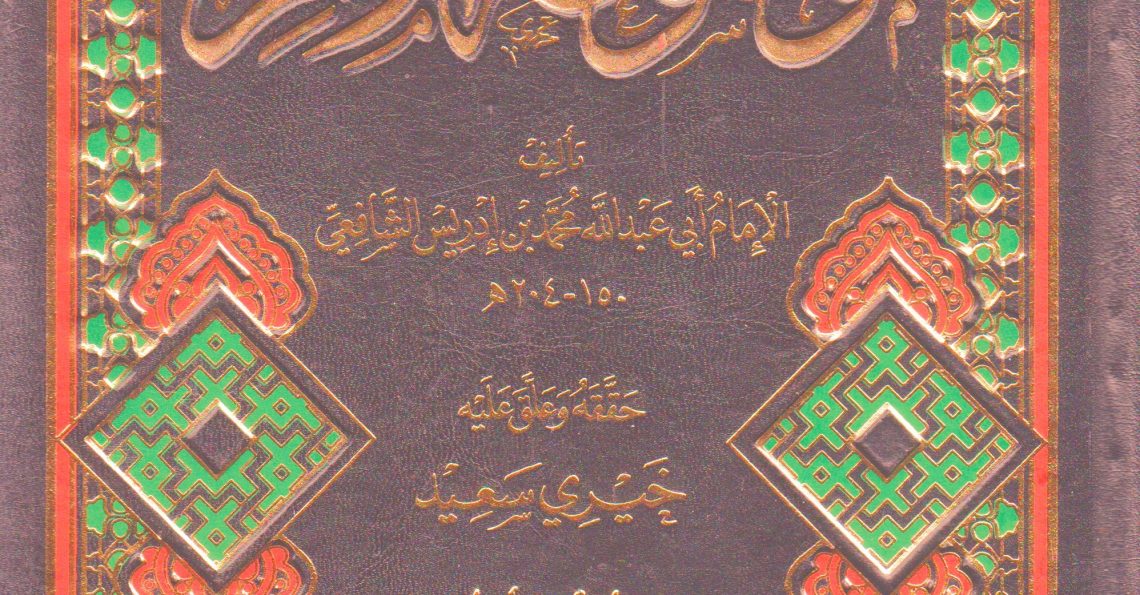 تَأليفْ
الإِمَامُ أَبي عَبْد اللَّه مُحَمَّد بْن إدْرِيسْ الشَّافِعِيّ
١٥٠-٢٠٤ هـ
حَقَّقَهُ وَعَلَّقَ عَلَيْه
خَيْرِي سَعِيْد